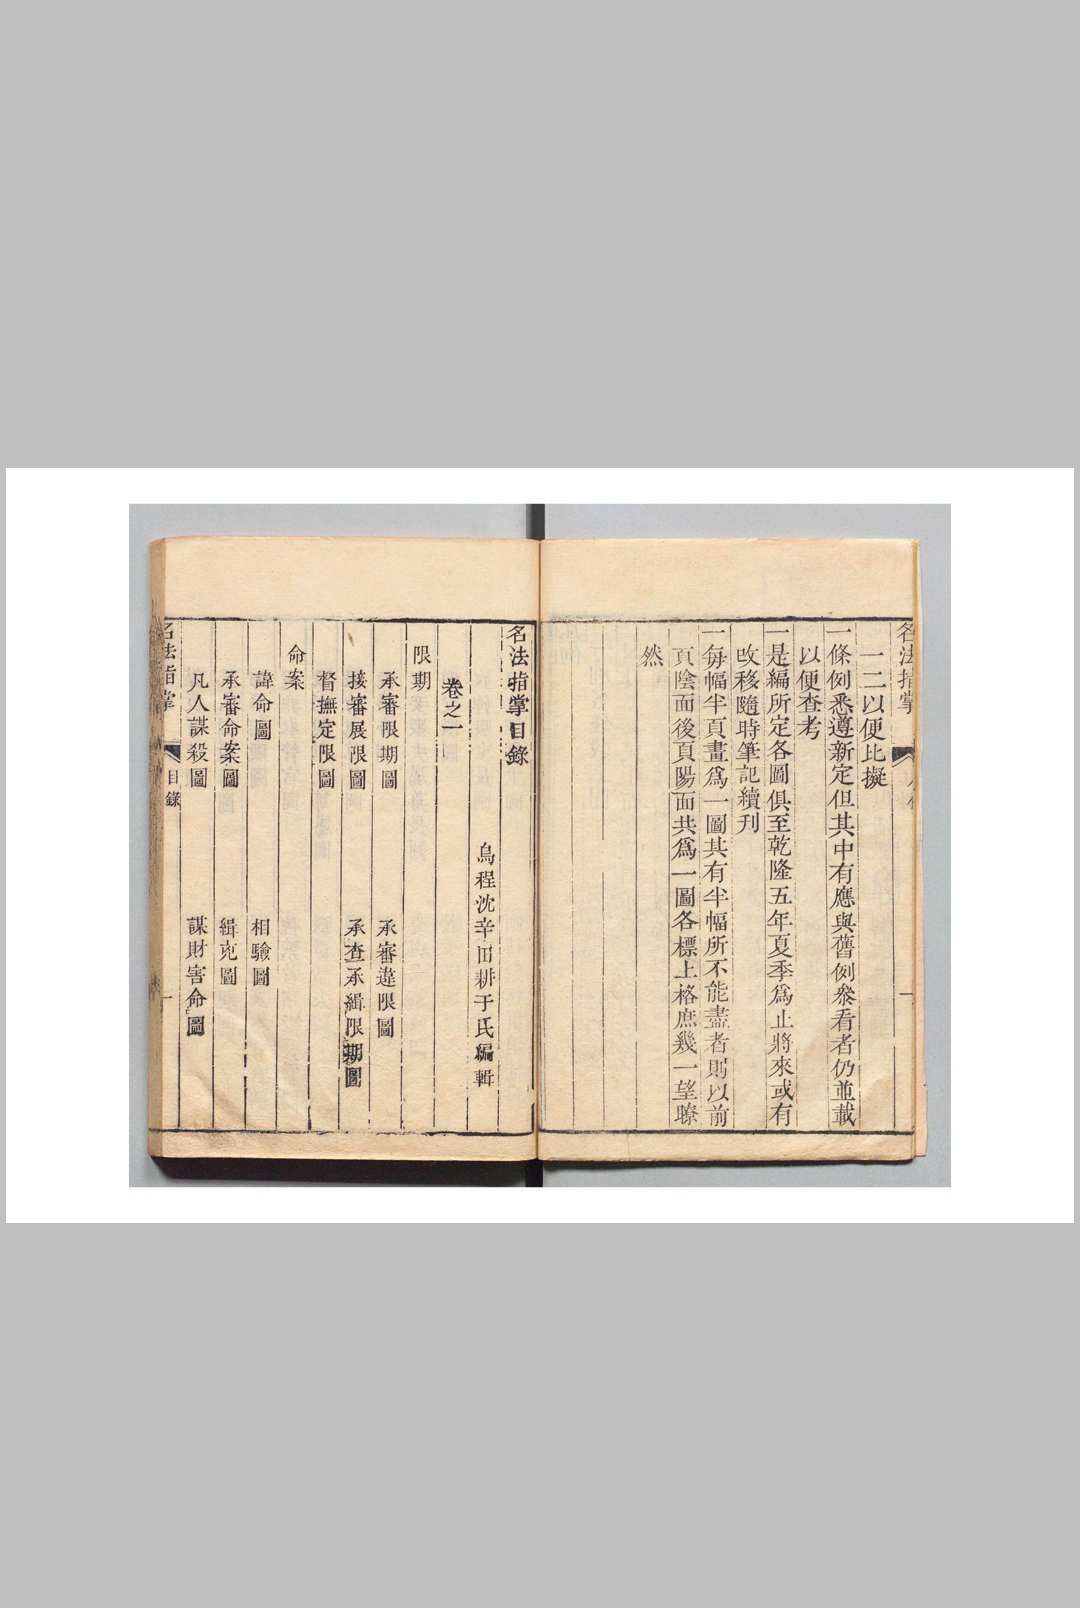 名法指掌
一二以便比擬
一條例悉遵新定但其中有應與舊例叅看者仍並載
以便查考
一是編所定各圖俱至乾隆五年夏季爲止將來或有
改移隨時筆記續刋
一毎幅半頁畫爲一圖其有半幅所不能盡者則以前
頁陰面後頁陽面共爲一圖各標上格庶幾一望瞭
然
名法指掌目錄
烏程沈辛田耕于氏編輯
卷之一
限期
承審限期圖 承審違限圖
接審展限圖 承查承緝限期圖
督撫定限圖
命案
諱命圖 相驗圖
承審命案圖 緝兇圖
凡人謀殺圖 謀財害命圖
名法指掌 目錄 一